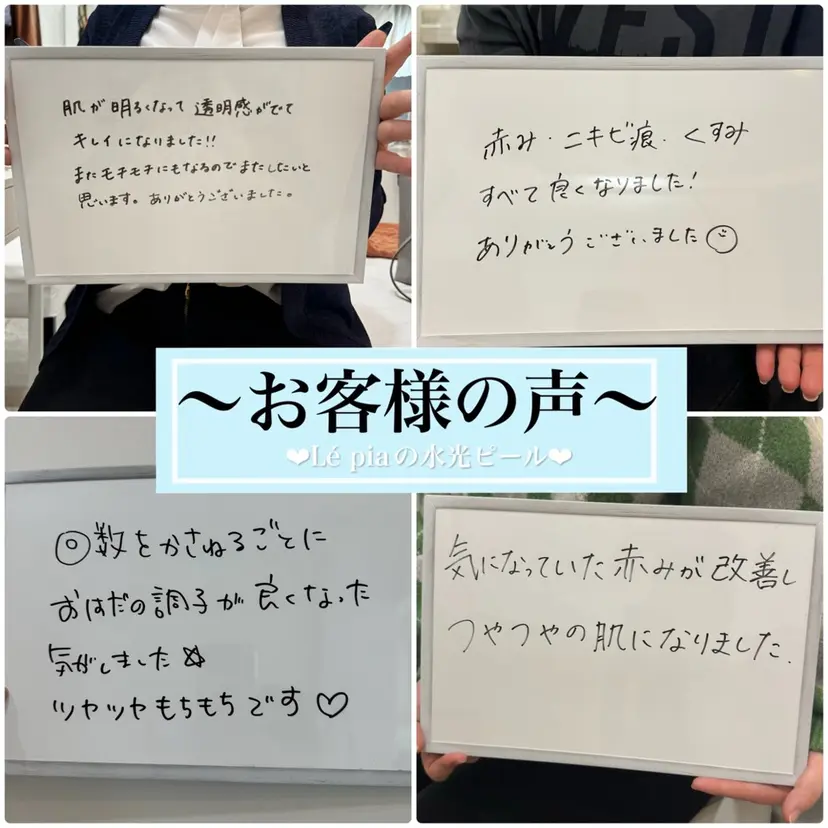 肌が明るくなって 透明感がでて
キレイになりました!!
またモチモチにもなるのでまたしたいと
思います。ありがとうございました。
赤み・ニキビ痕・くすみ
すべて良くなりました!
ありがとうございました☺
〜お客様の声〜
❤Lé piaの水光ピール❤
回数をかさねるごとに
おはだの調子が良くなった
気がしました☆
ツヤツヤもちもちです♡
気になっていた赤みが改善し
つやつやの肌になりました.